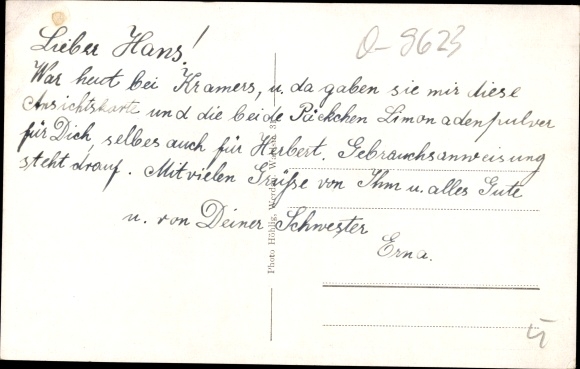 O-9623
Lieber Hans!
War heut bei Kramers, u. da gaben sie mir diese
Ansichtskarte und die beide Päckchen Limonadenpulver
für Dich, selbes auch für Herbert. Gebrauchsanweisung
steht drauf. Mit vielen Grüsse von Ihm u. alles Gute
u. von Deiner Schwester
Erna.
Photo Höhlig, Werdau,